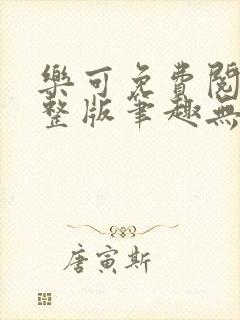 樂可免費閱
整版筆趣無
唐寅斯